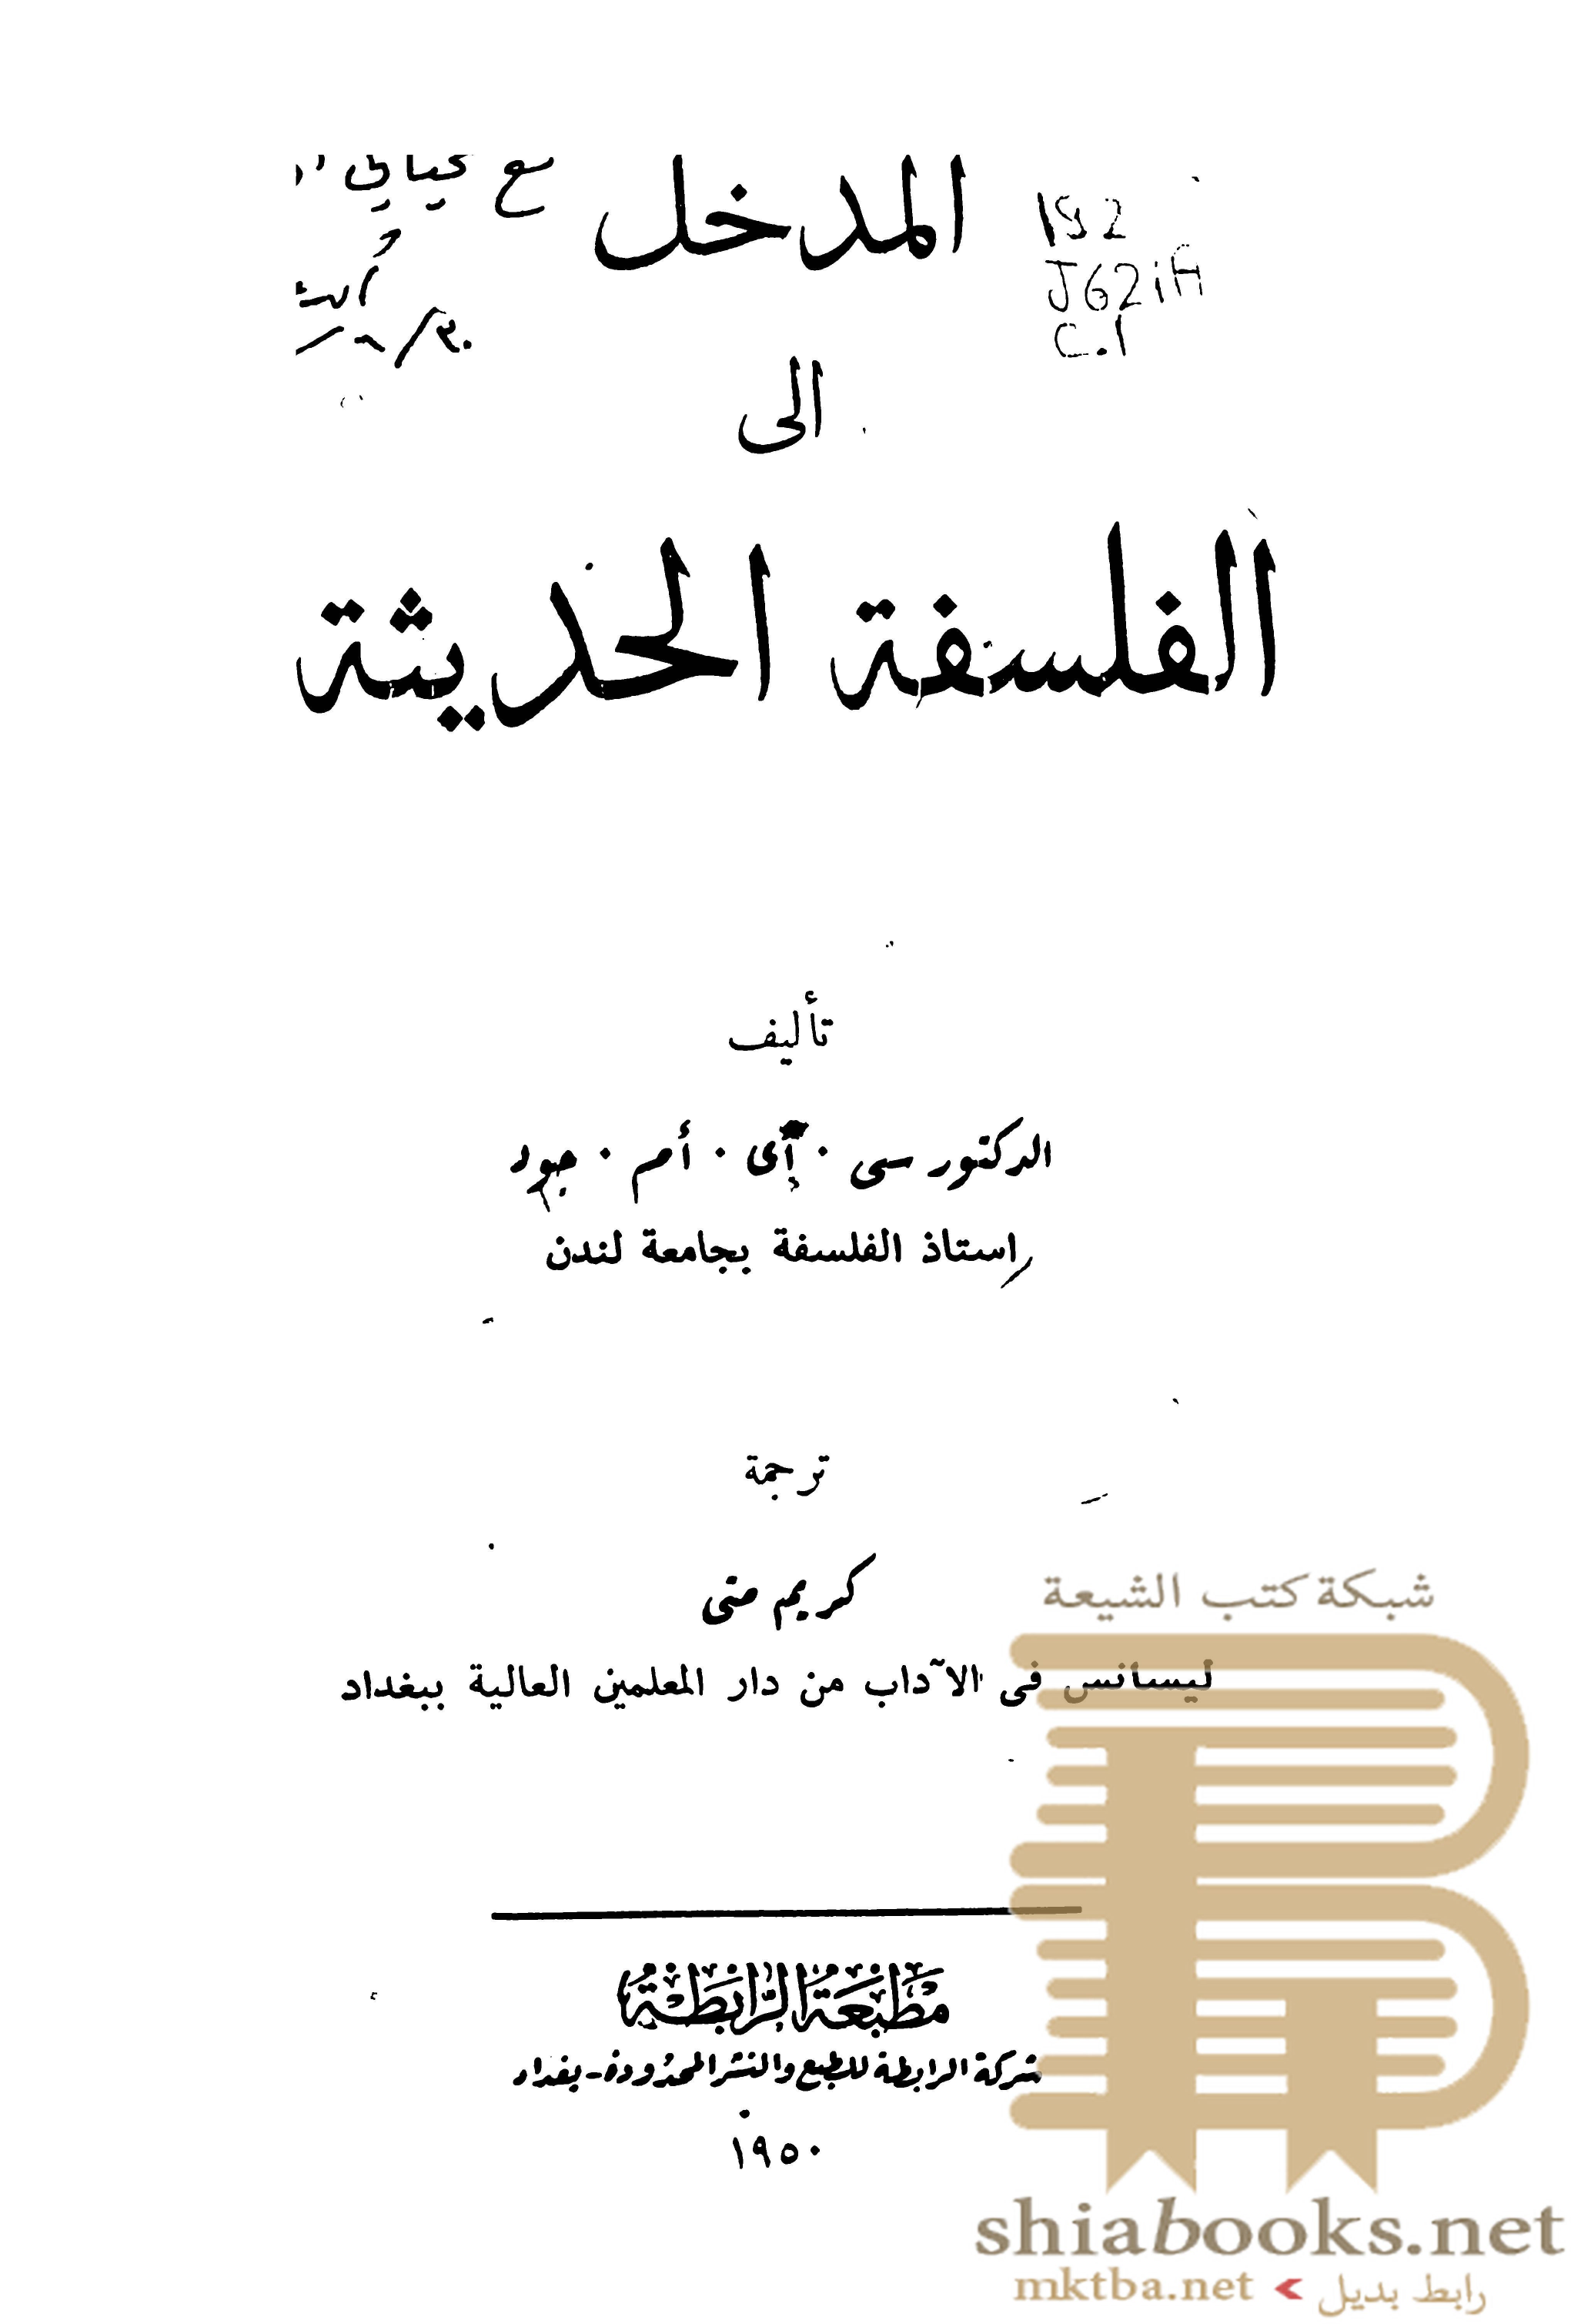 المدخل
192
J62iA
C.1
الى
الفلسفة الحديثة
تأليف
الدكتور سى . إى . أم . جود
استاذ الفلسفة بجامعة لندن
ترجمة
كريم متى
ليسانس فى الآداب من دار المعلمين العالية ببغداد
مطبعة الرابطة
شركة الرابطة للطبع والنشر المحدودة - بغداد
١٩٥٠
شبكة كتب الشيعة
shiabooks.net
mktba.net < رابط بديل